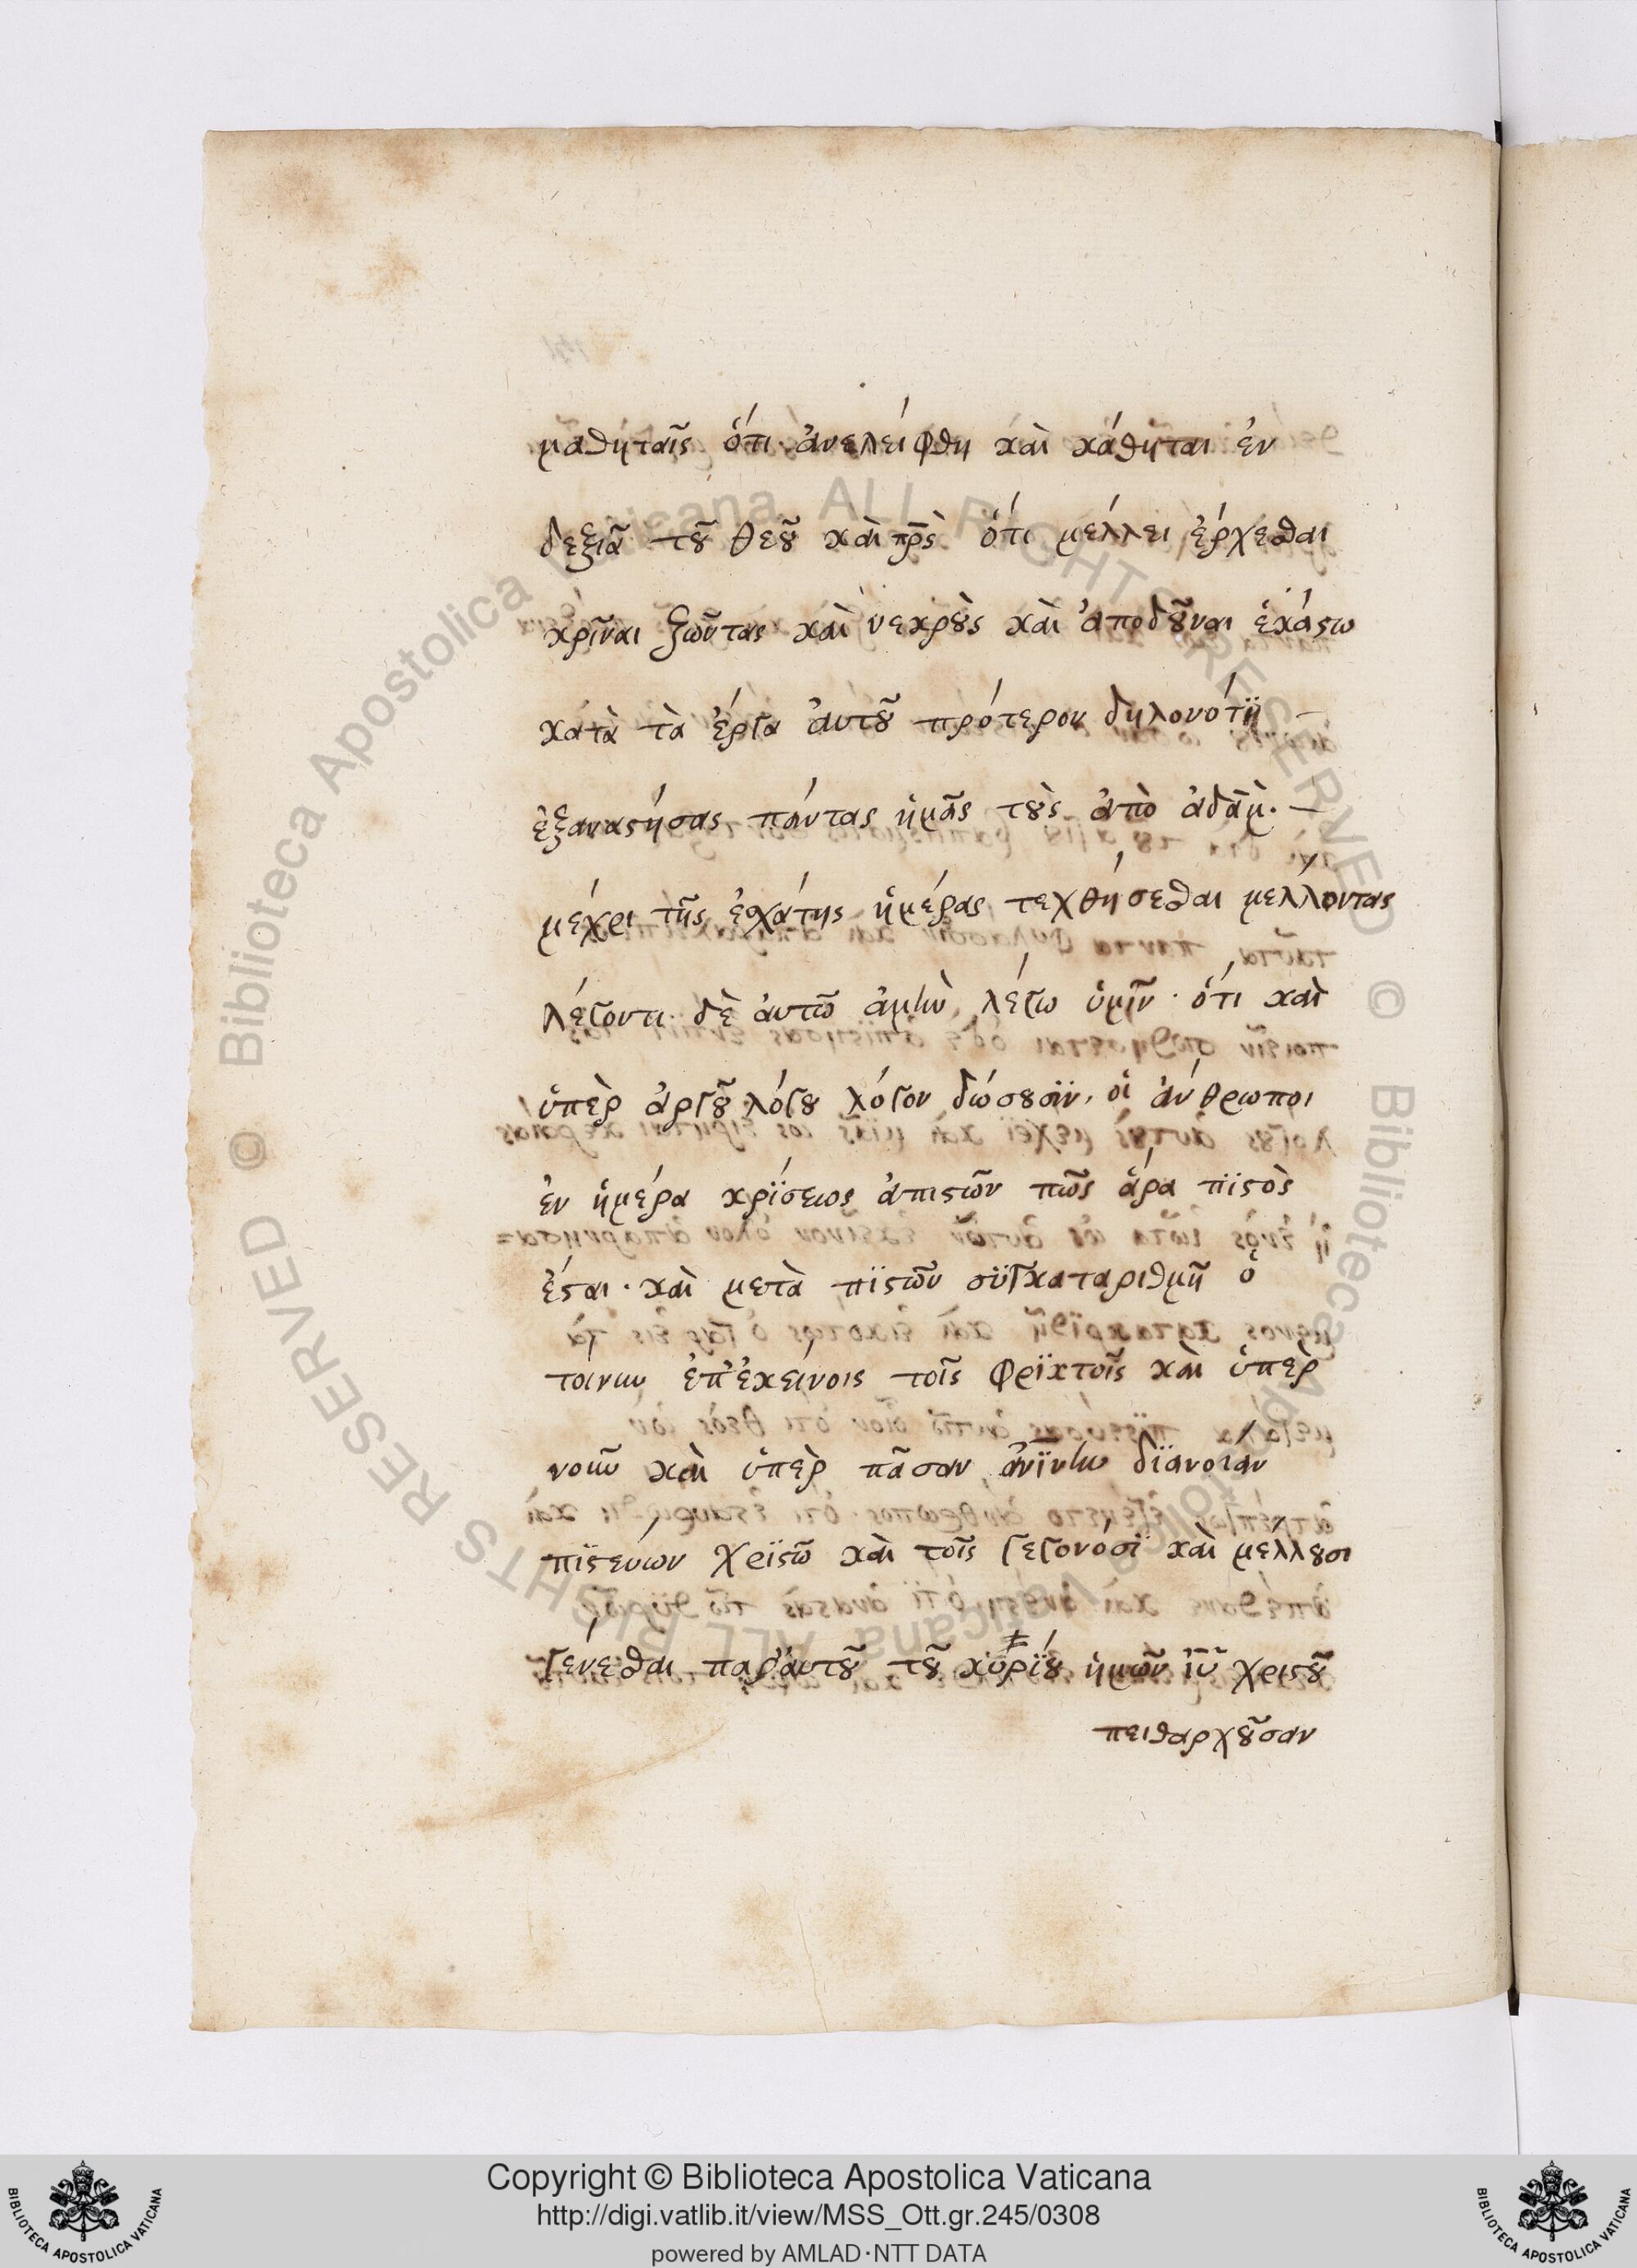 μαθηταῖς ὅτι ἀνελείφθη καὶ κάθηται ἐν
δεξιᾶ τοῦ θεοῦ καὶ πρ̅ς ὅτι μέλλει ἔρχεσθαι
κρῖναι ζῶντας καὶ νεκροὺς καὶ ἀποδοῦναι ἑκάστω
κατὰ τὰ ἔργα ἀυτοῦ πρότερον δηλονότϊ –
ἐξαναστήσας πάντας ἡμᾶς τοὺς ἀπὸ ἀδὰμ. –
μέχρι τῆς ἐσχάτης ἡμέρας τεχθήσεσθαι μέλλοντας
λέγοντι δὲ ἀυτῶ ἀμὴν λέγω ὑμῖν · ὅτι καὶ
ὑπὲρ ἀργοῦ λόγου λόγον δώσουσϊν, οἱ ἄνθρωποι
ἐν ἡμέρα κρΐσεως ἀπιστῶν πῶς ἄρα πϊστὸς
ἔσται · καὶ μετὰ πϊστῶν σϋγκαταριθμῆ ὁ
τοίνυν ἐπ' ἐκείνοις τοῖς φρϊκτοῖς καὶ ὑπὲρ
νοῦν καὶ ὑπὲρ πᾶσαν ἀν̅ϊνην δϊάνοιαν
πϊστεύων χρϊστῶ καὶ τοῖς γεγονόσϊ καὶ μέλλουσι
γενέσθαι παρ' ἀυτοῦ τοῦ κυρΐου ἡμῶν ἰ̅υ̅ χριστοῦ
πειθαρχοῦσαν
Copyright © Biblioteca Apostolica Vaticana
http://digi.vatlib.it/view/MSS_Ott.gr.245/0308
powered by AMLAD·NTT DATA
BIBLIOTECA APOSTOLICA VATICANA
BIBLIOTECA APOSTOLICA VATICANA
© Biblioteca Apostolica Vaticana ALL RIGHTS RESERVED
© Biblioteca Apostolica Vaticana ALL RIGHTS RESERVED